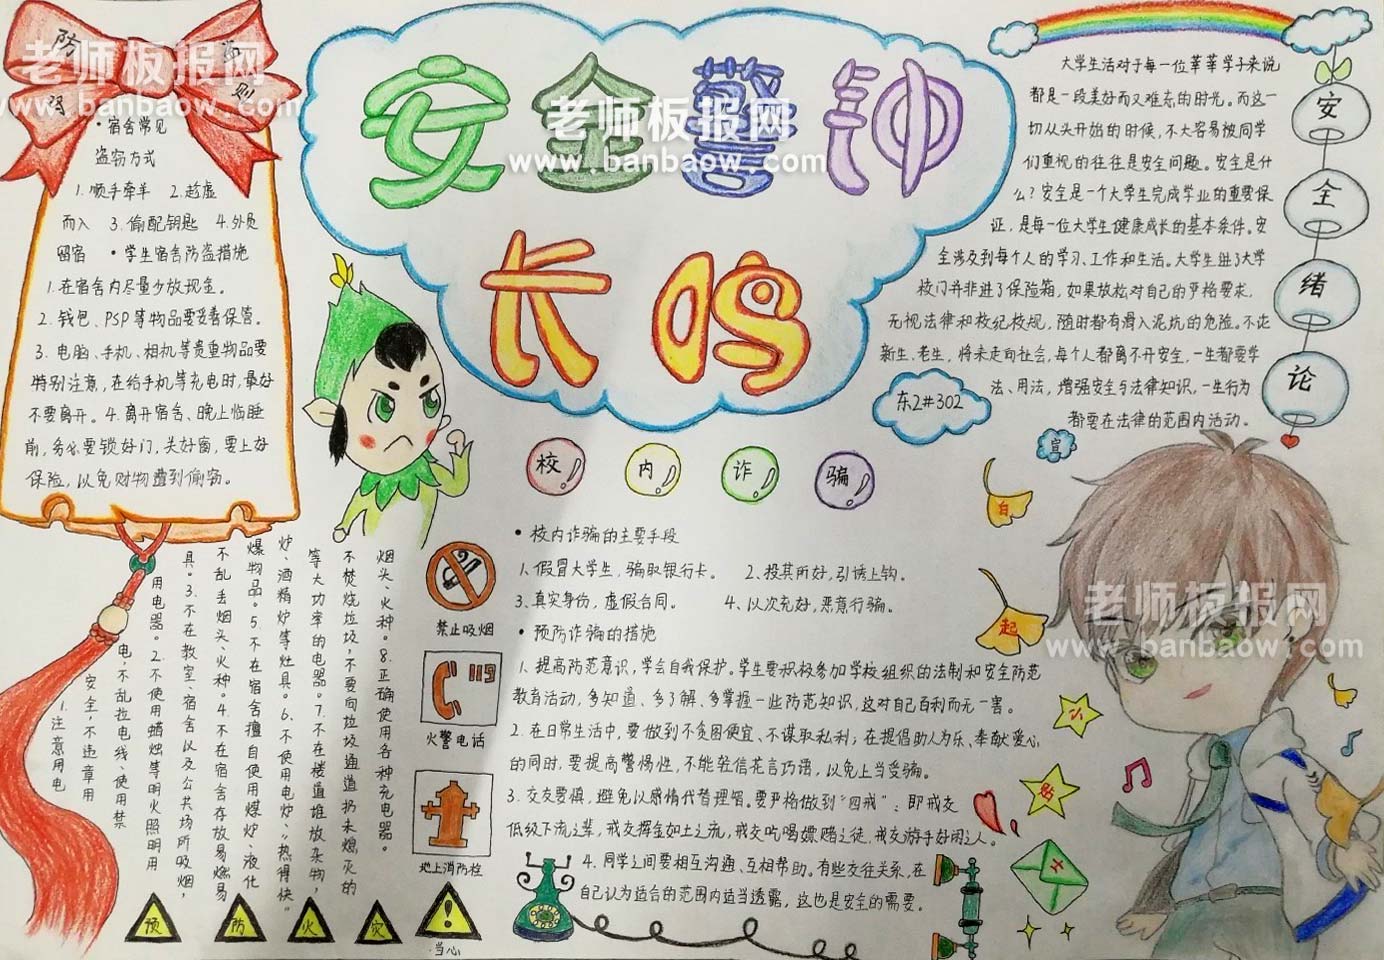 安全警钟
长鸣
老师板报网
www.banbaow.com
防
则
•宿舍常见
盗窃方式
1.顺手牵羊 2.趁虚
而入 3.偷配钥匙 4.外员
留宿 •学生宿舍防盗措施
1.在宿舍内尽量少放现金。
2.钱包、PSP等物品要妥善保管。
3.电脑、手机、相机等贵重物品要
特别注意,在给手机等充电时,最好
不要离开。4.离开宿舍、晚上临睡
前,务必要锁好门,关好窗,要上好
保险,以免财物遭到偷窃。
安全绪论
大学生活对于每一位莘莘学子来说
都是一段美好而又难忘的时光。而这一
切从头开始的时候,不大容易被同学
们重视的往往是安全问题。安全是什
么?安全是一个大学生完成学业的重要保
证,是每一位大学生健康成长的基本条件。安
全涉及到每个人的学习、工作和生活。大学生进了大学
校门并非进了保险箱,如果放松对自己的严格要求,
无视法律和校纪校规,随时都有滑入泥坑的危险。不论
新生、老生,将来走向社会,每个人都离不开安全,一生都要学
法、用法,增强安全与法律知识,一生行为
都要在法律的范围内活动。
东2#302
宣
校内诈骗
•校内诈骗的主要手段
1、假冒大学生,骗取银行卡。 2、投其所好,引诱上钩。
3、真实身份,虚假合同。 4、以次充好,恶意行骗。
•预防诈骗的措施
1.提高防范意识,学会自我保护。学生要积极参加学校组织的法制和安全防范
教育活动,多知道、多了解、多掌握一些防范知识,这对自己百利而无一害。
2.在日常生活中,要做到不贪图便宜、不谋取私利;在提倡助人为乐、奉献爱心
的同时,要提高警惕性,不能轻信花言巧语,以免上当受骗。
3.交友要慎,避免以感情代替理智。要严格做到“四戒”:即戒交
低级下流之辈,戒交挥金如土之流,戒交吃喝嫖赌之徒,戒交游手好闲之人。
4.同学之间要相互沟通、互相帮助。有些交往关系,在
自己认为适合的范围内适当透露,这也是安全的需要。
1.注意用电
安全,不违章用
电,不乱拉电线、使用禁
用电器。2.不使用蜡烛等明火照明用
具。3.不在教室、宿舍以及公共场所吸烟,
不乱丢烟头、火种。4.不在宿舍存放易燃易
爆物品。5.不在宿舍擅自使用煤炉、液化
炉、酒精炉等灶具。6.不使用电炉、热得快
等大功率的电器。7.不在楼道堆放杂物,
不焚烧垃圾,不要向垃圾通道扔未熄灭的
烟头、火种。8.正确使用各种充电器。
禁止吸烟
119
火警电话
地上消防栓
预防火灾
当心
起
老师板报网
www.banbaow.com
老师板报网
www.banbaow.com